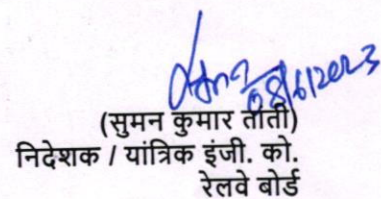 08/6/2023
(सुमन कुमार ताँती)
निदेशक / यांत्रिक इंजी. को.
रेलवे बोर्ड